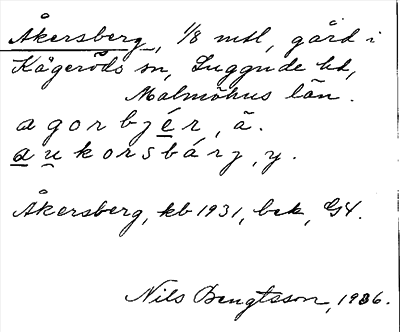 Åkersberg, 1/8 mtl, gård i
Kågeröds sn, Luggude hd,
Malmöhus län.
agorbjér, ä.
aukorsbárj, y.
Åkersberg, kb 1931, bek, GX.
Nils Bengtsson, 1936.